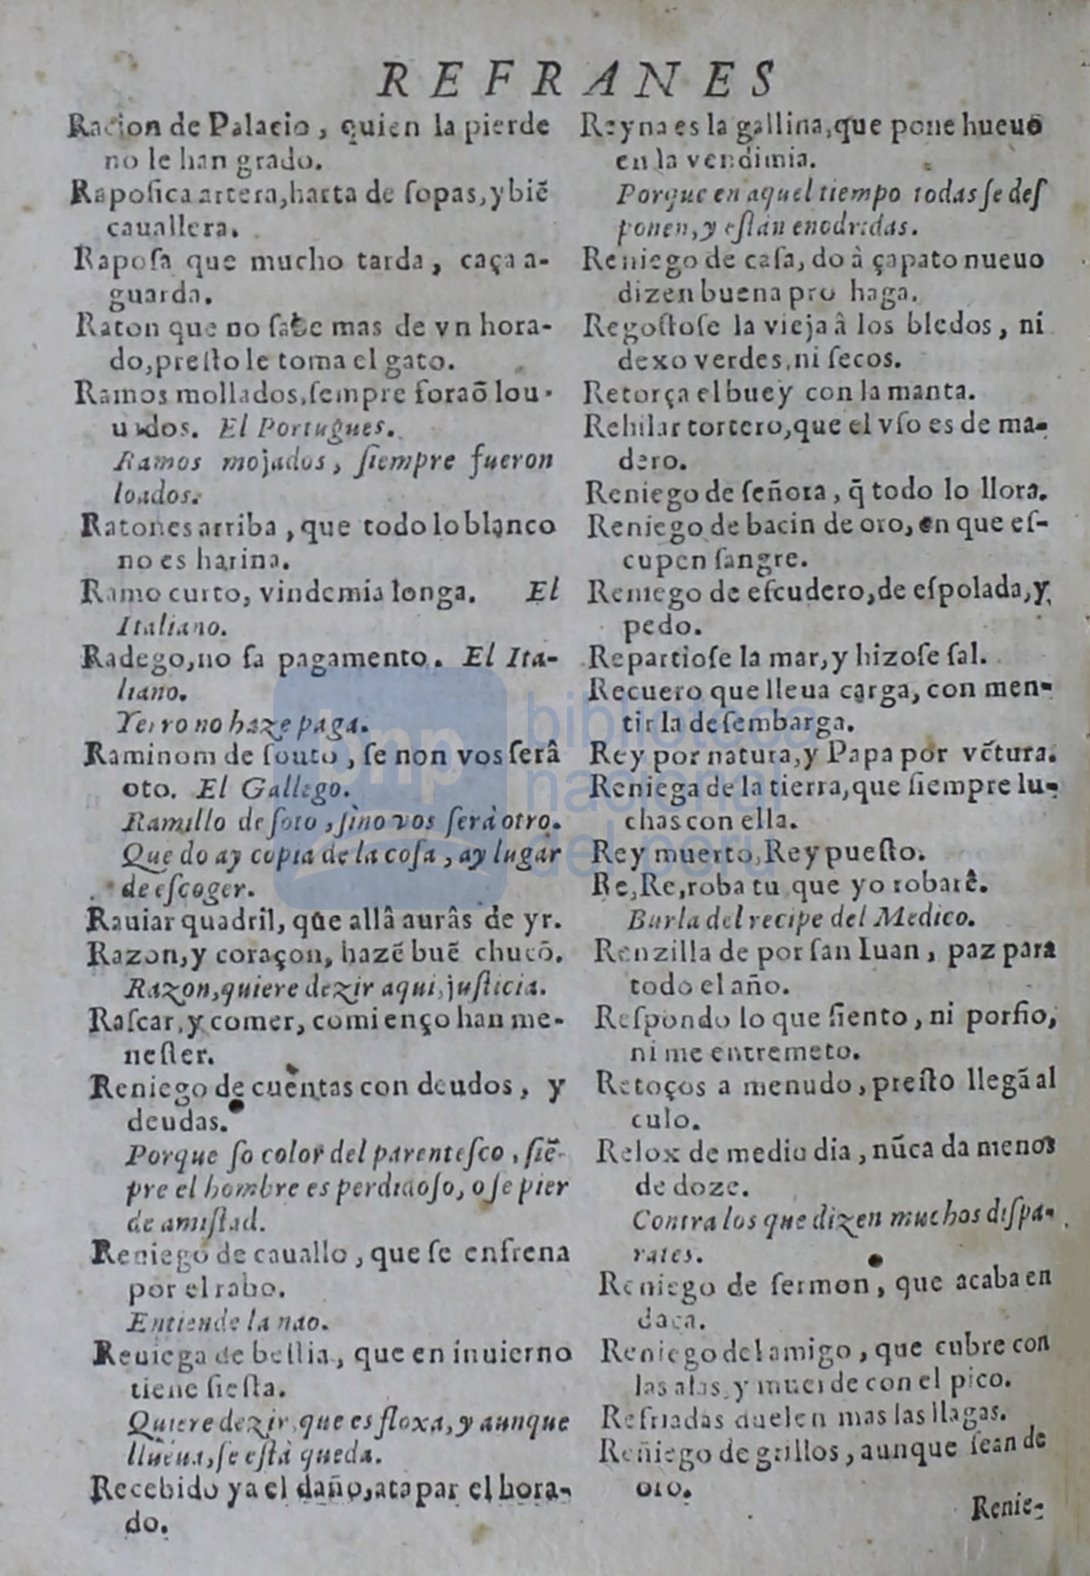 REFRANES
Racion de Palacio, quien la pierde
no le han grado.
Raposica artera, harta de sopas, y biẽ
cauallera.
Raposa que mucho tarda, caça a-
guarda.
Raton que no sabe mas de vn hora-
do, presto le toma el gato.
Ramos mollados, sempre foraõ lou-
uados. El Portugues.
Ramos mojados, siempre fueron
loados.
Ratones arriba, que todo lo blanco
no es harina.
Ramo curto, vindemia longa. El
Italiano.
Radego, no fa pagamento. El Ita-
liano.
Yerro no haze paga.
Raminom de souto, se non vos serâ
oto. El Gallego.
Ramillo de soto, sino vos serà otro.
Que do ay copia de la cosa, ay lugar
de escoger.
Rauiar quadril, que allâ aurâs de yr.
Razon, y coraçon, hazẽ buẽ chucõ.
Razon, quiere dezir aqui, justicia.
Rascar, y comer, comienço han me-
nester.
Reniego de cuentas con deudos, y
deudas.
Porque so color del parentesco, siẽ-
pre el hombre es perdidoso, o se pier
de amistad.
Reniego de cauallo, que se enfrena
por el rabo.
Entiende la nao.
Reniega de bestia, que en inuierno
tiene siesta.
Quiere dezir, que es floxa, y aunque
llueua, se està queda.
Recebido ya el daño, atapar el hora-
do.
Reyna es la gallina, que pone hueuo
en la vendimia.
Porque en aquel tiempo todas se des
ponen, y están enodridas.
Reniego de casa, do â çapato nueuo
dizen buena pro haga.
Regostose la vieja â los bledos, ni
dexo verdes, ni secos.
Retorça el buey con la manta.
Rehilar tortero, que el vso es de ma-
dero.
Reniego de señora, q̃ todo lo llora.
Reniego de bacin de oro, en que es-
cupen sangre.
Reniego de escudero, de espolada, y
pedo.
Repartiose la mar, y hizose sal.
Recuero que lleua carga, con men-
tir la desembarga.
Rey por natura, y Papa por vẽtura.
Reniega de la tierra, que siempre lu-
chas con ella.
Rey muerto, Rey puesto.
Re, Re, roba tu que yo robarê.
Burla del recipe del Medico.
Renzilla de por san Iuan, paz para
todo el año.
Respondo lo que siento, ni porfio,
ni me entremeto.
Retoços a menudo, presto llegã al
culo.
Relox de medio dia, nũca da menos
de doze.
Contra los que dizen muchos dispa-
rates.
Reniego de sermon, que acaba en
daca.
Reniego del amigo, que cubre con
las alas, y muerde con el pico.
Refriadas duelen mas las llagas.
Reñiego de grillos, aunque sean de
oro.
Renie-
bnp biblioteca
nacional
del perú